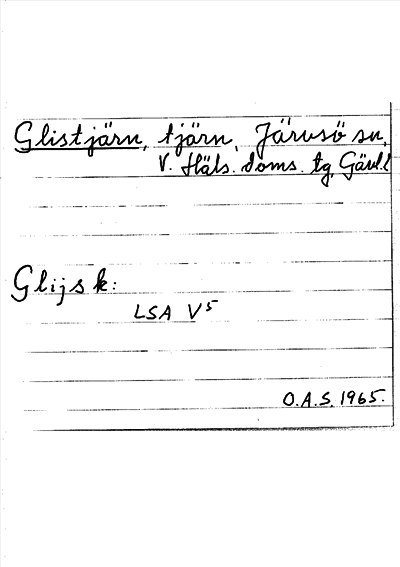 Glistjärn, tjärn, Järvsö sn,
V. Häls. doms. tg, Gävl.l
Glijsk:
LSA V5
O.A.S. 1965.